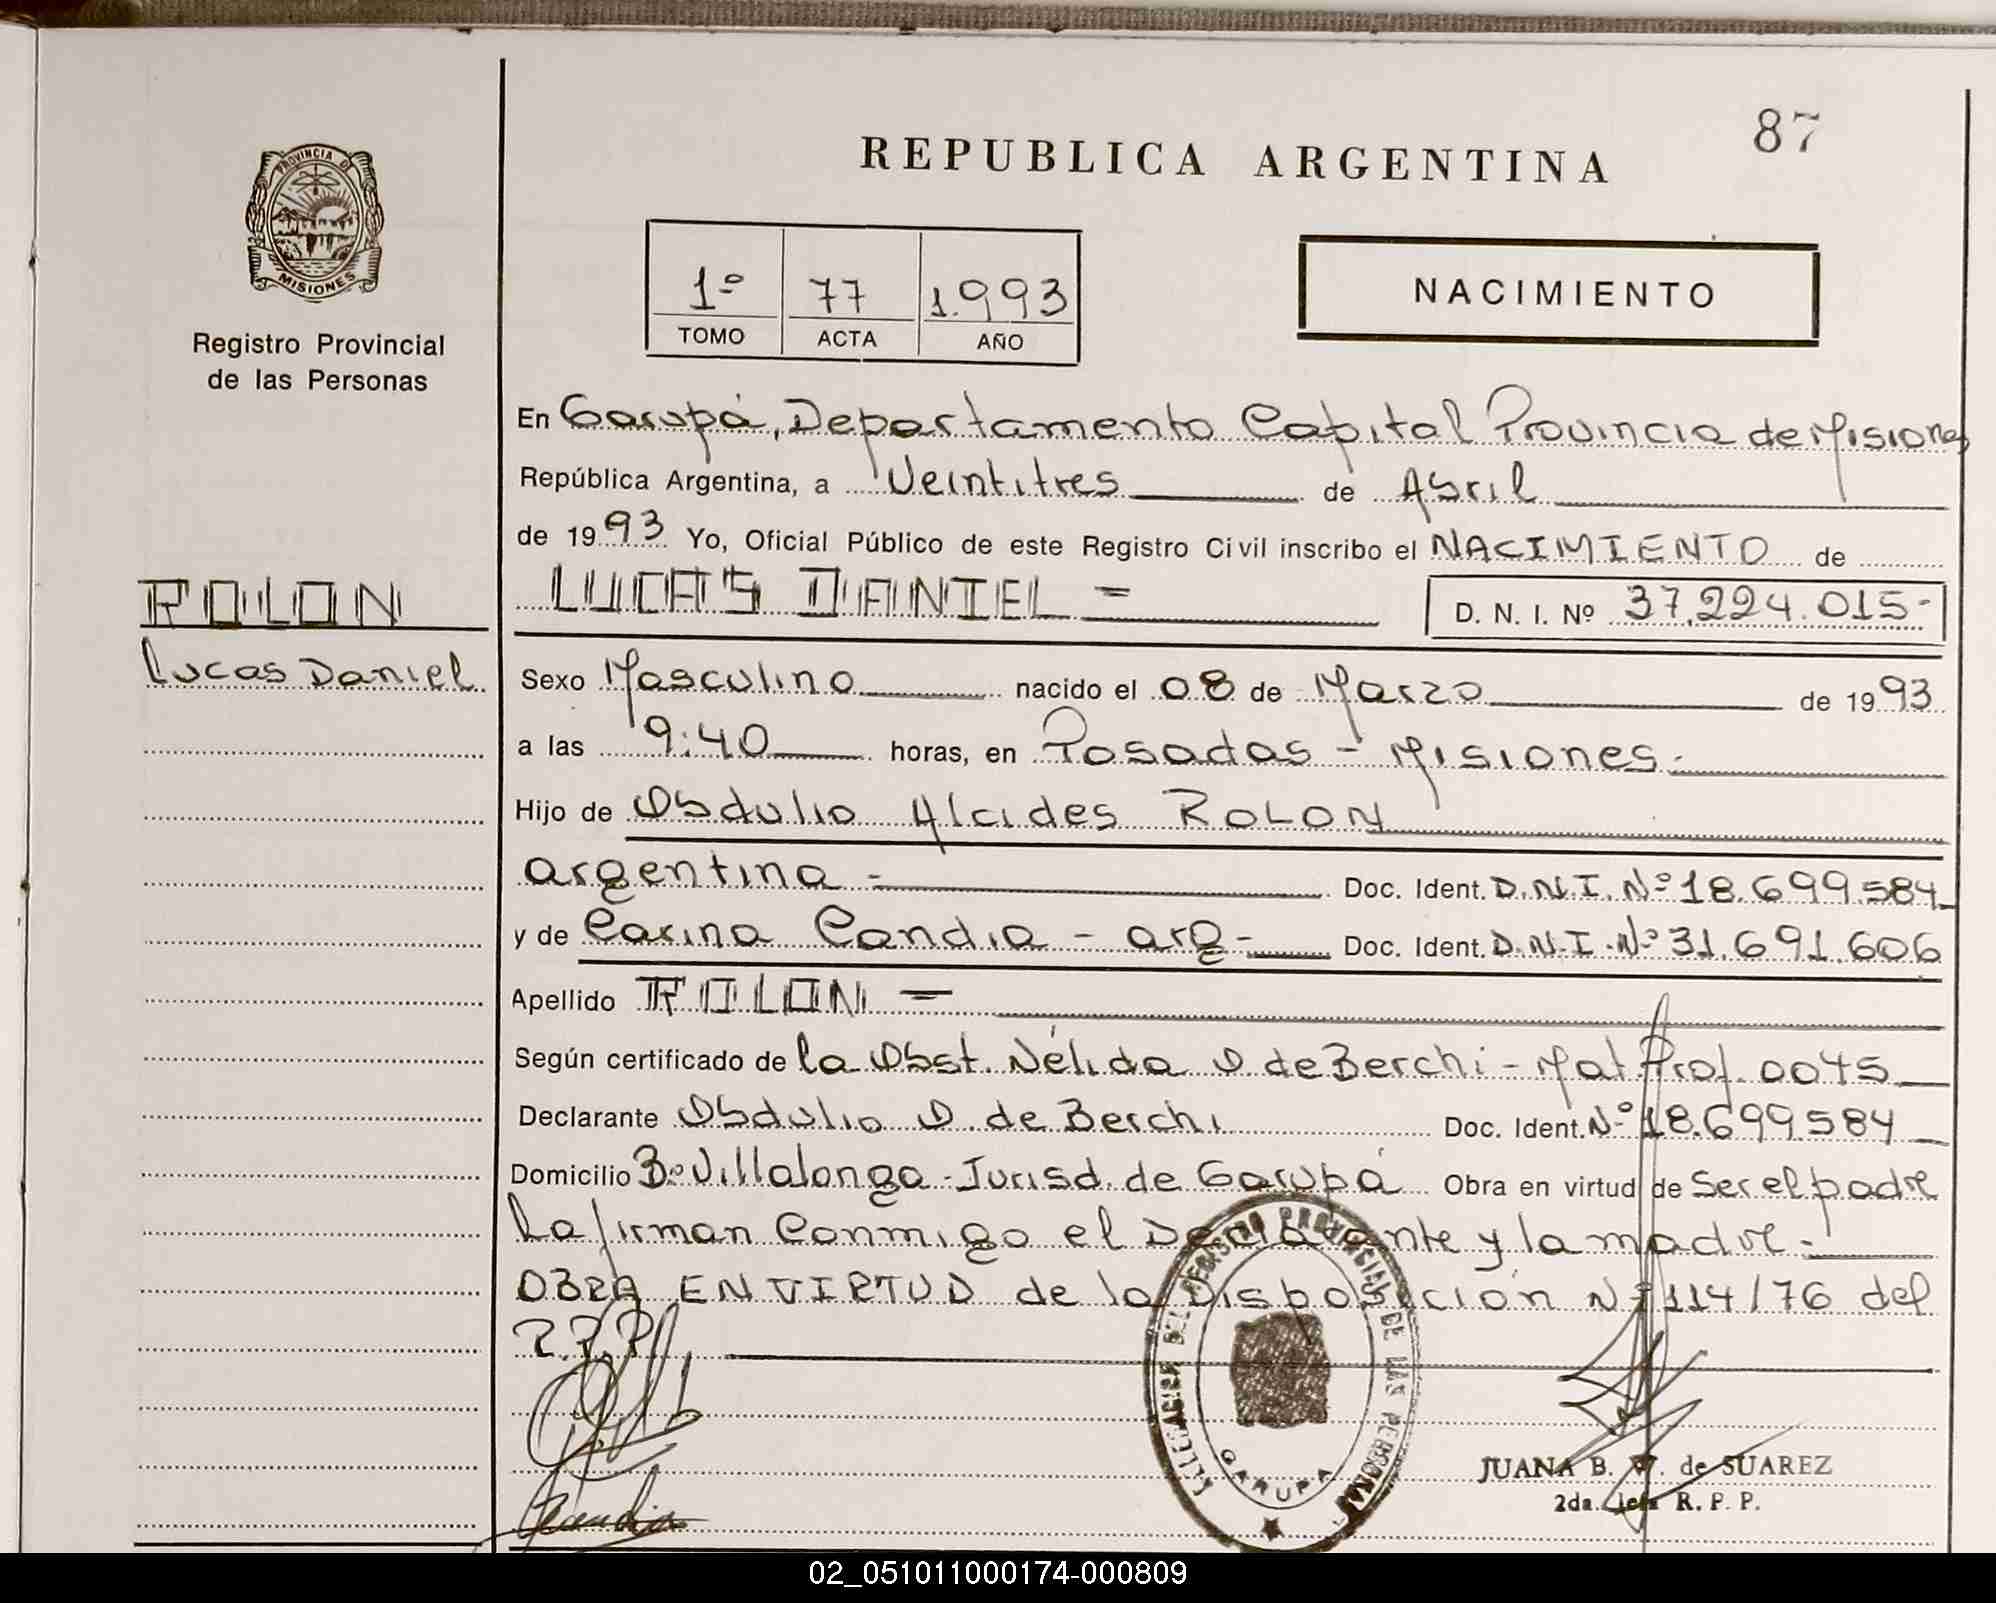 87
REPUBLICA ARGENTINA
PROVINCIA DE
MISIONES
Registro Provincial
de las Personas
1º 77 1.993
TOMO ACTA AÑO
NACIMIENTO
En Garupá, Departamento Capital Provincia de Misiones
República Argentina, a Veintitres de Abril
de 1993 Yo, Oficial Público de este Registro Civil inscribo el NACIMIENTO de
ROLON
LUCAS DANIEL =
D. N. I. Nº 37.224.015-
Lucas Daniel
Sexo Masculino nacido el 08 de Marzo de 1993
a las 9:40 horas, en Posadas - Misiones.
Hijo de Obdulio Alcides ROLON
argentina - Doc. Ident. D.N.I. Nº 18.699.584
y de Carina Candia - arg- Doc. Ident. D.N.I. Nº 31.691.606
Apellido ROLON =
Según certificado de la Obst. Nélida O de Berchi - Mat Prof. 0045
Declarante Obdulio O. de Berchi Doc. Ident. Nº 18.699.584
Domicilio Bº Villalonga - Jurisd. de Garupá Obra en virtud de Ser el padre
La firman Conmigo el Declarante y la madre.
OBRA EN VIRTUD de la Disposición Nº 114/76 del
R.P.P.
DELEGACION DEL REGISTRO PROVINCIAL DE LAS PERSONAS
GARUPA
Candia
JUANA B. de SUAREZ
2da. Jefa R. P. P.
02_051011000174-000809